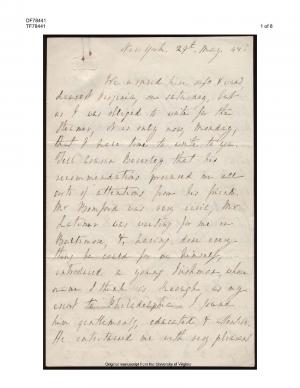 DF78441
TF78441
1 of 8
New York. 29th May. 44
We arrived here safe & well,
dearest Virginia, on Saturday, but
as I was obliged to write for the
Steamer, it is only now, Monday,
that I have time to write to you.
Tell Cousin Beverley that his
recommendations procured me all
sorts of attentions from his friends.
Mr Bomford was very civil, Mr
Latimer was waiting for me in
Baltimore, &, having done every
thing he could for me himself,
introduced a young Irishman, whose
name I think is as my
escort to Philadelphia. I found
him gentlemanly, educated &
He entertained me with very pleasant
Original manuscript from the University of Virginia